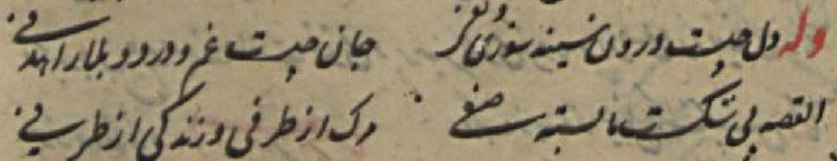 وله دل چیست درون سینه سوزی و تفی جان چیست غم و درد و بلا را هدفی
القصه پی شکست ما بسته صفی مرگ از طرفی و زندگی از طرفی